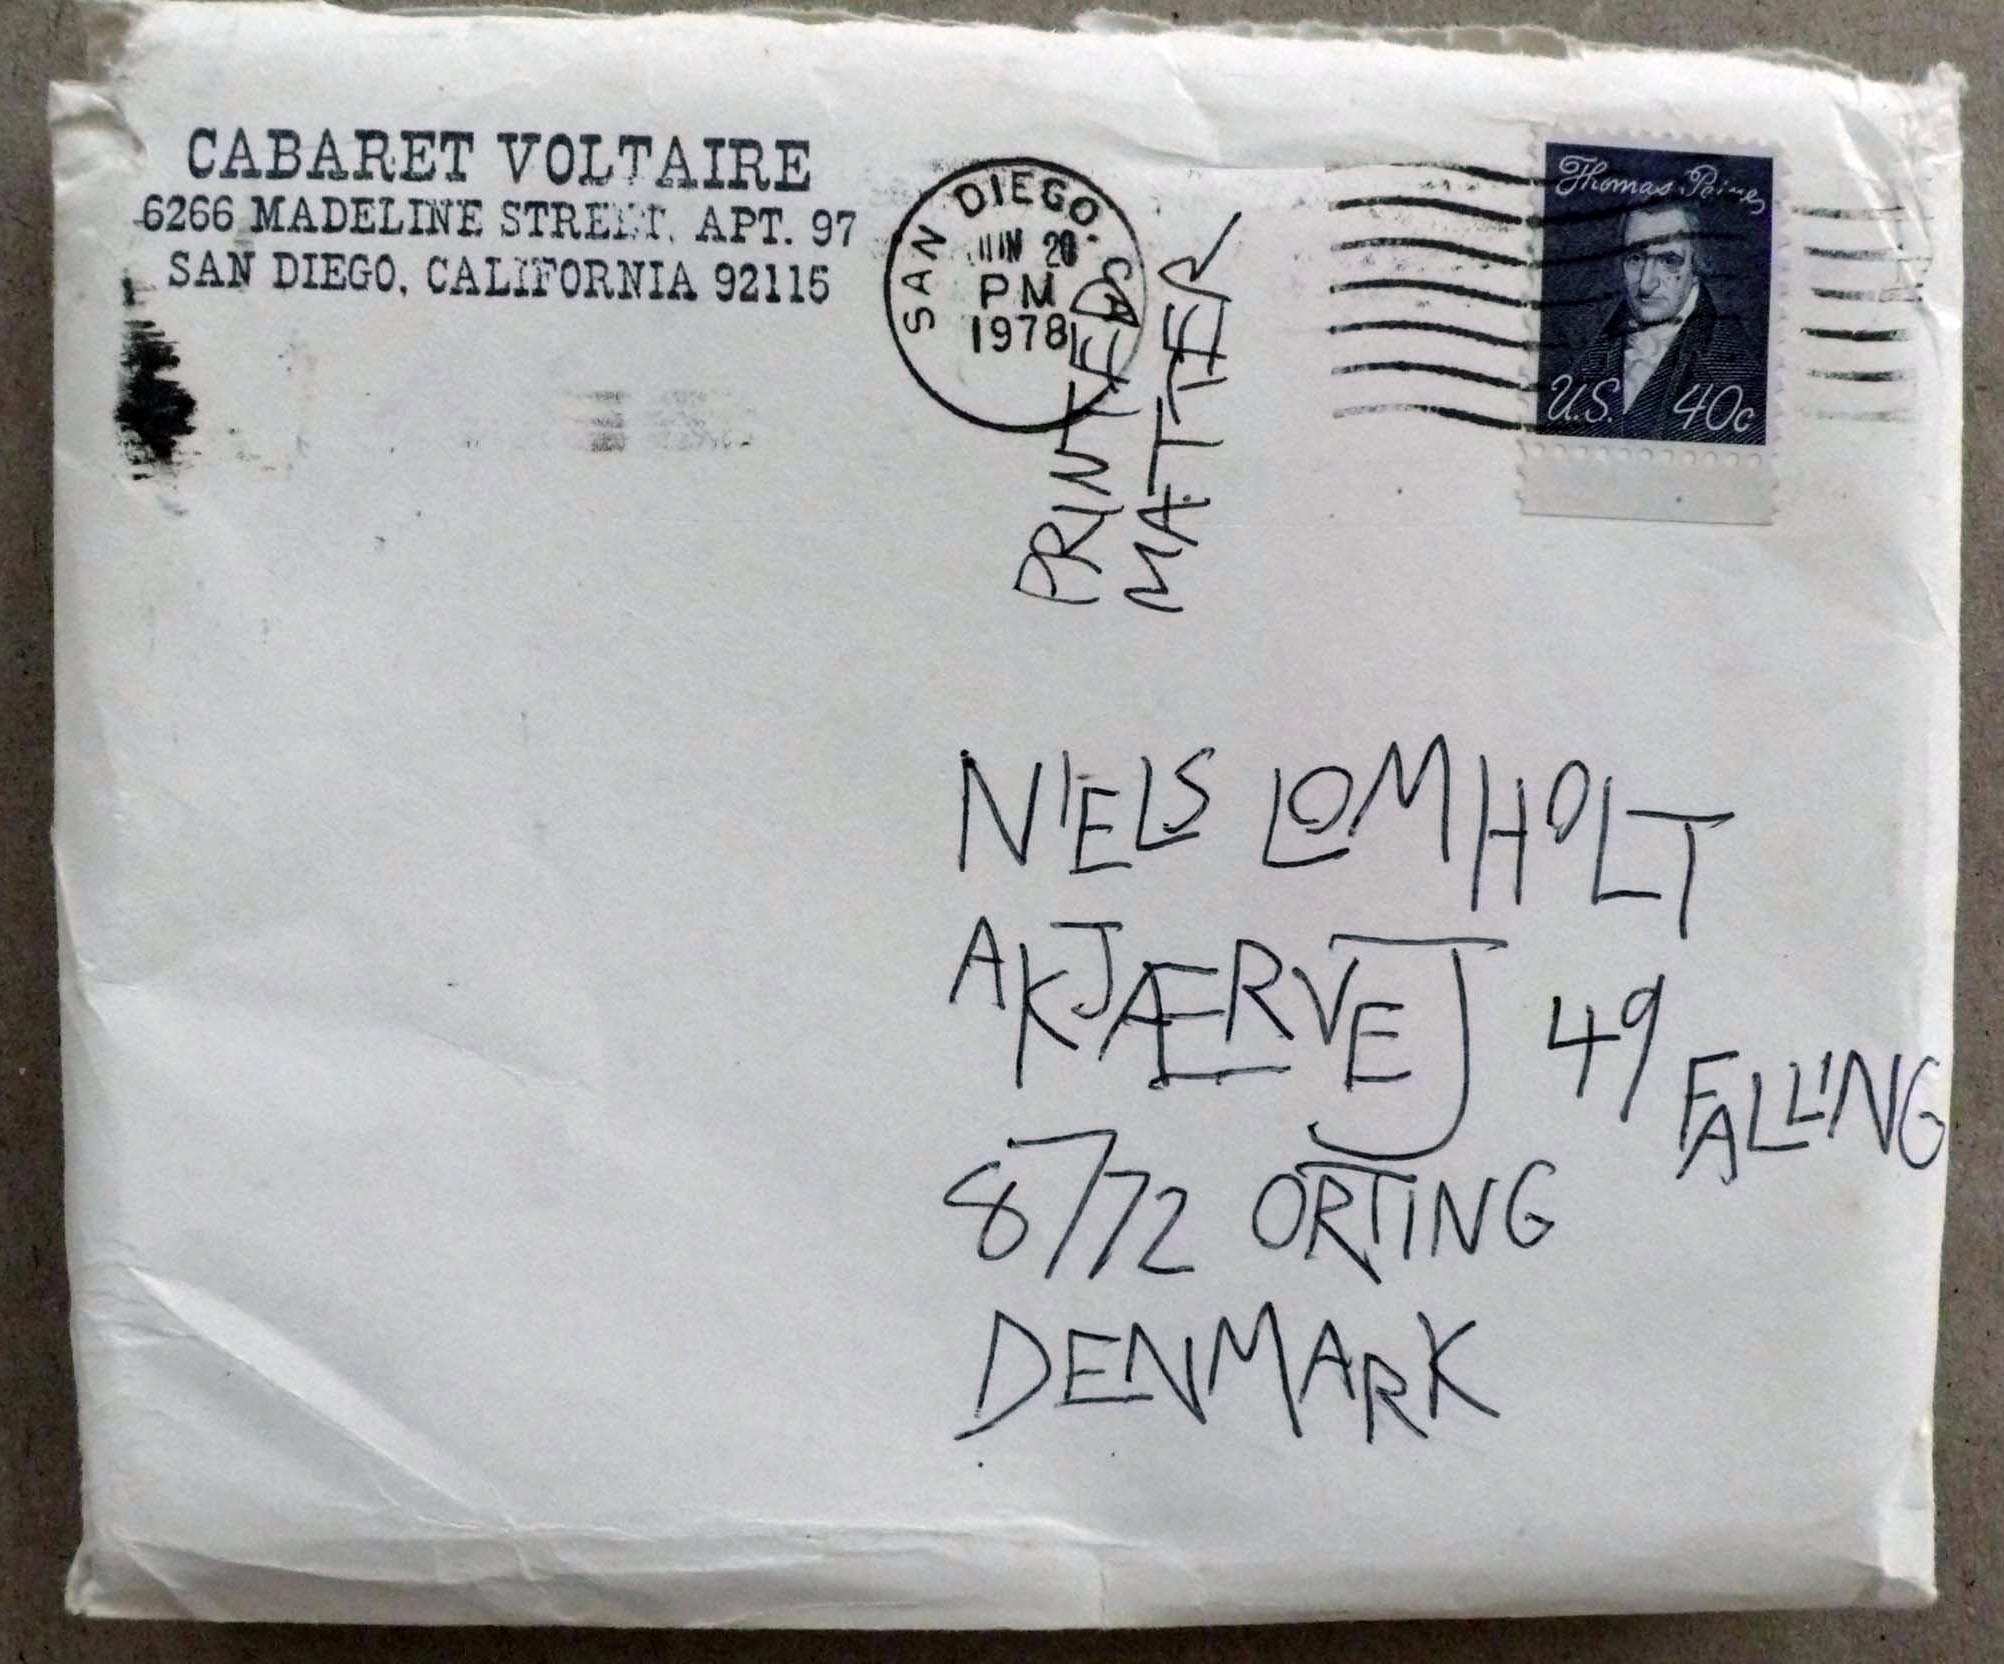 CABARET VOLTAIRE
6266 MADELINE STREET, APT. 97
SAN DIEGO, CALIFORNIA 92115
SAN DIEGO,
JUN 20
PM
1978
PRINTED
MATTER
Thomas Paine
U.S. 40c
NIELS LOMHOLT
AKJÆRVEJ 49
FALLING
8772 ORTING
DENMARK